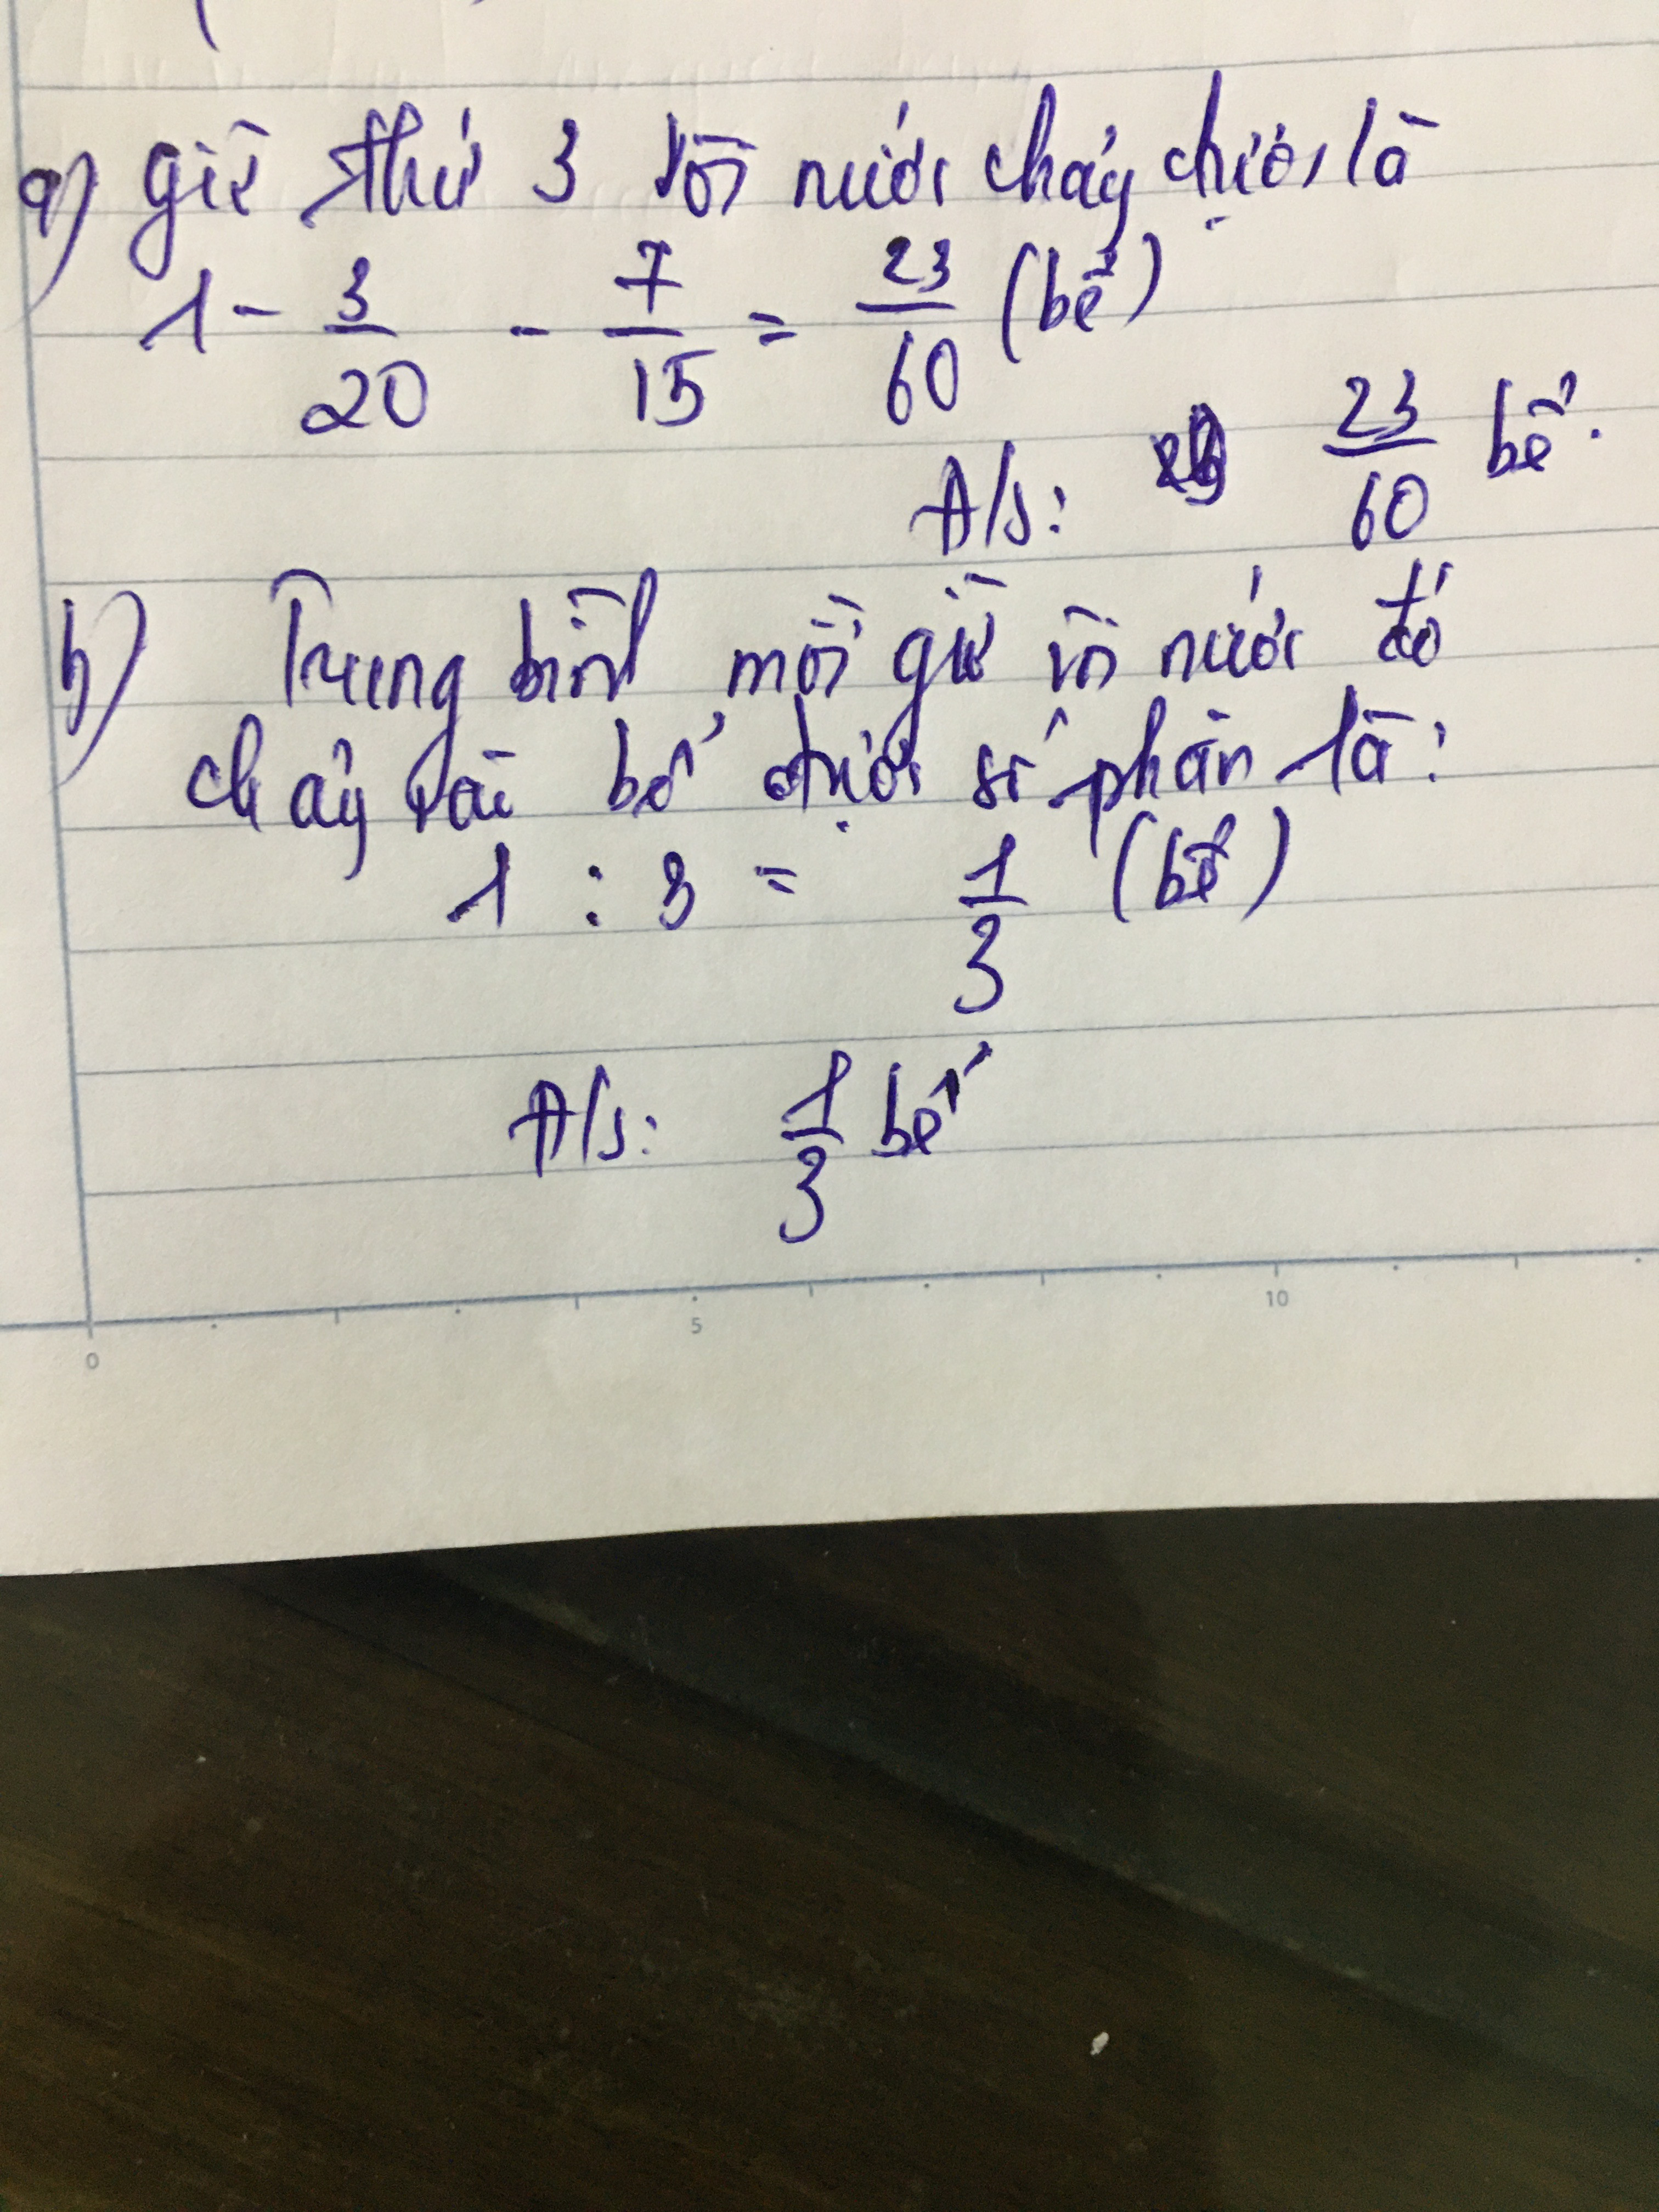 a) giờ thứ 3 vòi nước chảy được là
1 - 3/20 - 7/15 = 23/60 (bể)
Đ/s: 23/60 bể.
b) Trung bình mỗi giờ vòi nước đó
chảy vào bể được số phần là:
1 : 3 = 1/3 (bể)
Đ/s: 1/3 bể
0 5 10